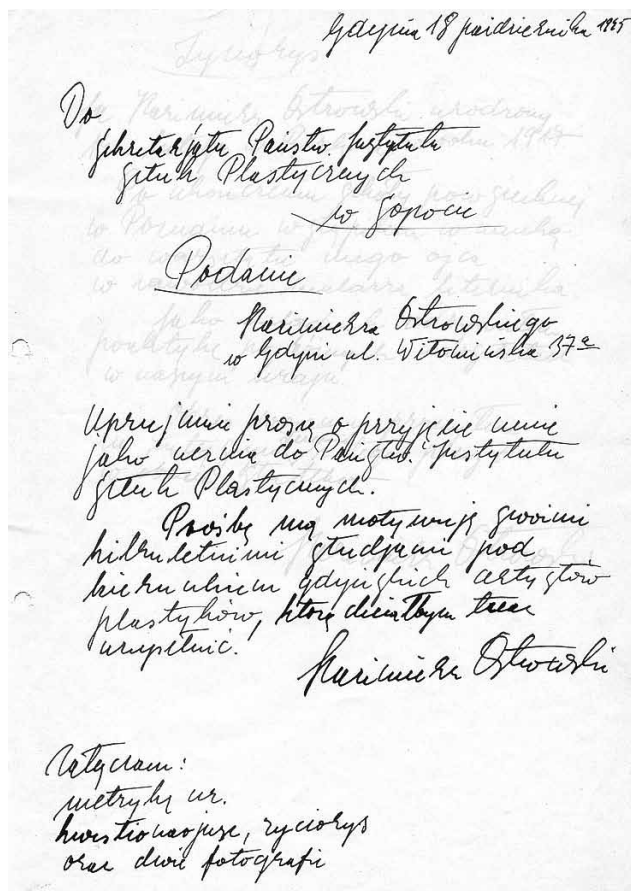 Gdynia 18 października 1945
Do
Sekretarjatu Państw. Instytutu
Sztuk Plastycznych
w Sopocie
Podanie
Kazimierza Ostrowskiego
w Gdyni ul. Witomińska 37a
Uprzejmie proszę o przyjęcie mnie
jako ucznia do Państw. Instytutu
Sztuk Plastycznych.
Prośbę mą motywuję swoimi
kilkuletnimi studjami pod
kierunkiem gdyńskich artystów
plastyków, które chciałbym teraz
uzupełnić.
Kazimierz Ostrowski
Załączam:
metrykę ur.
kwestionarjusz, życiorys
oraz dwie fotografie